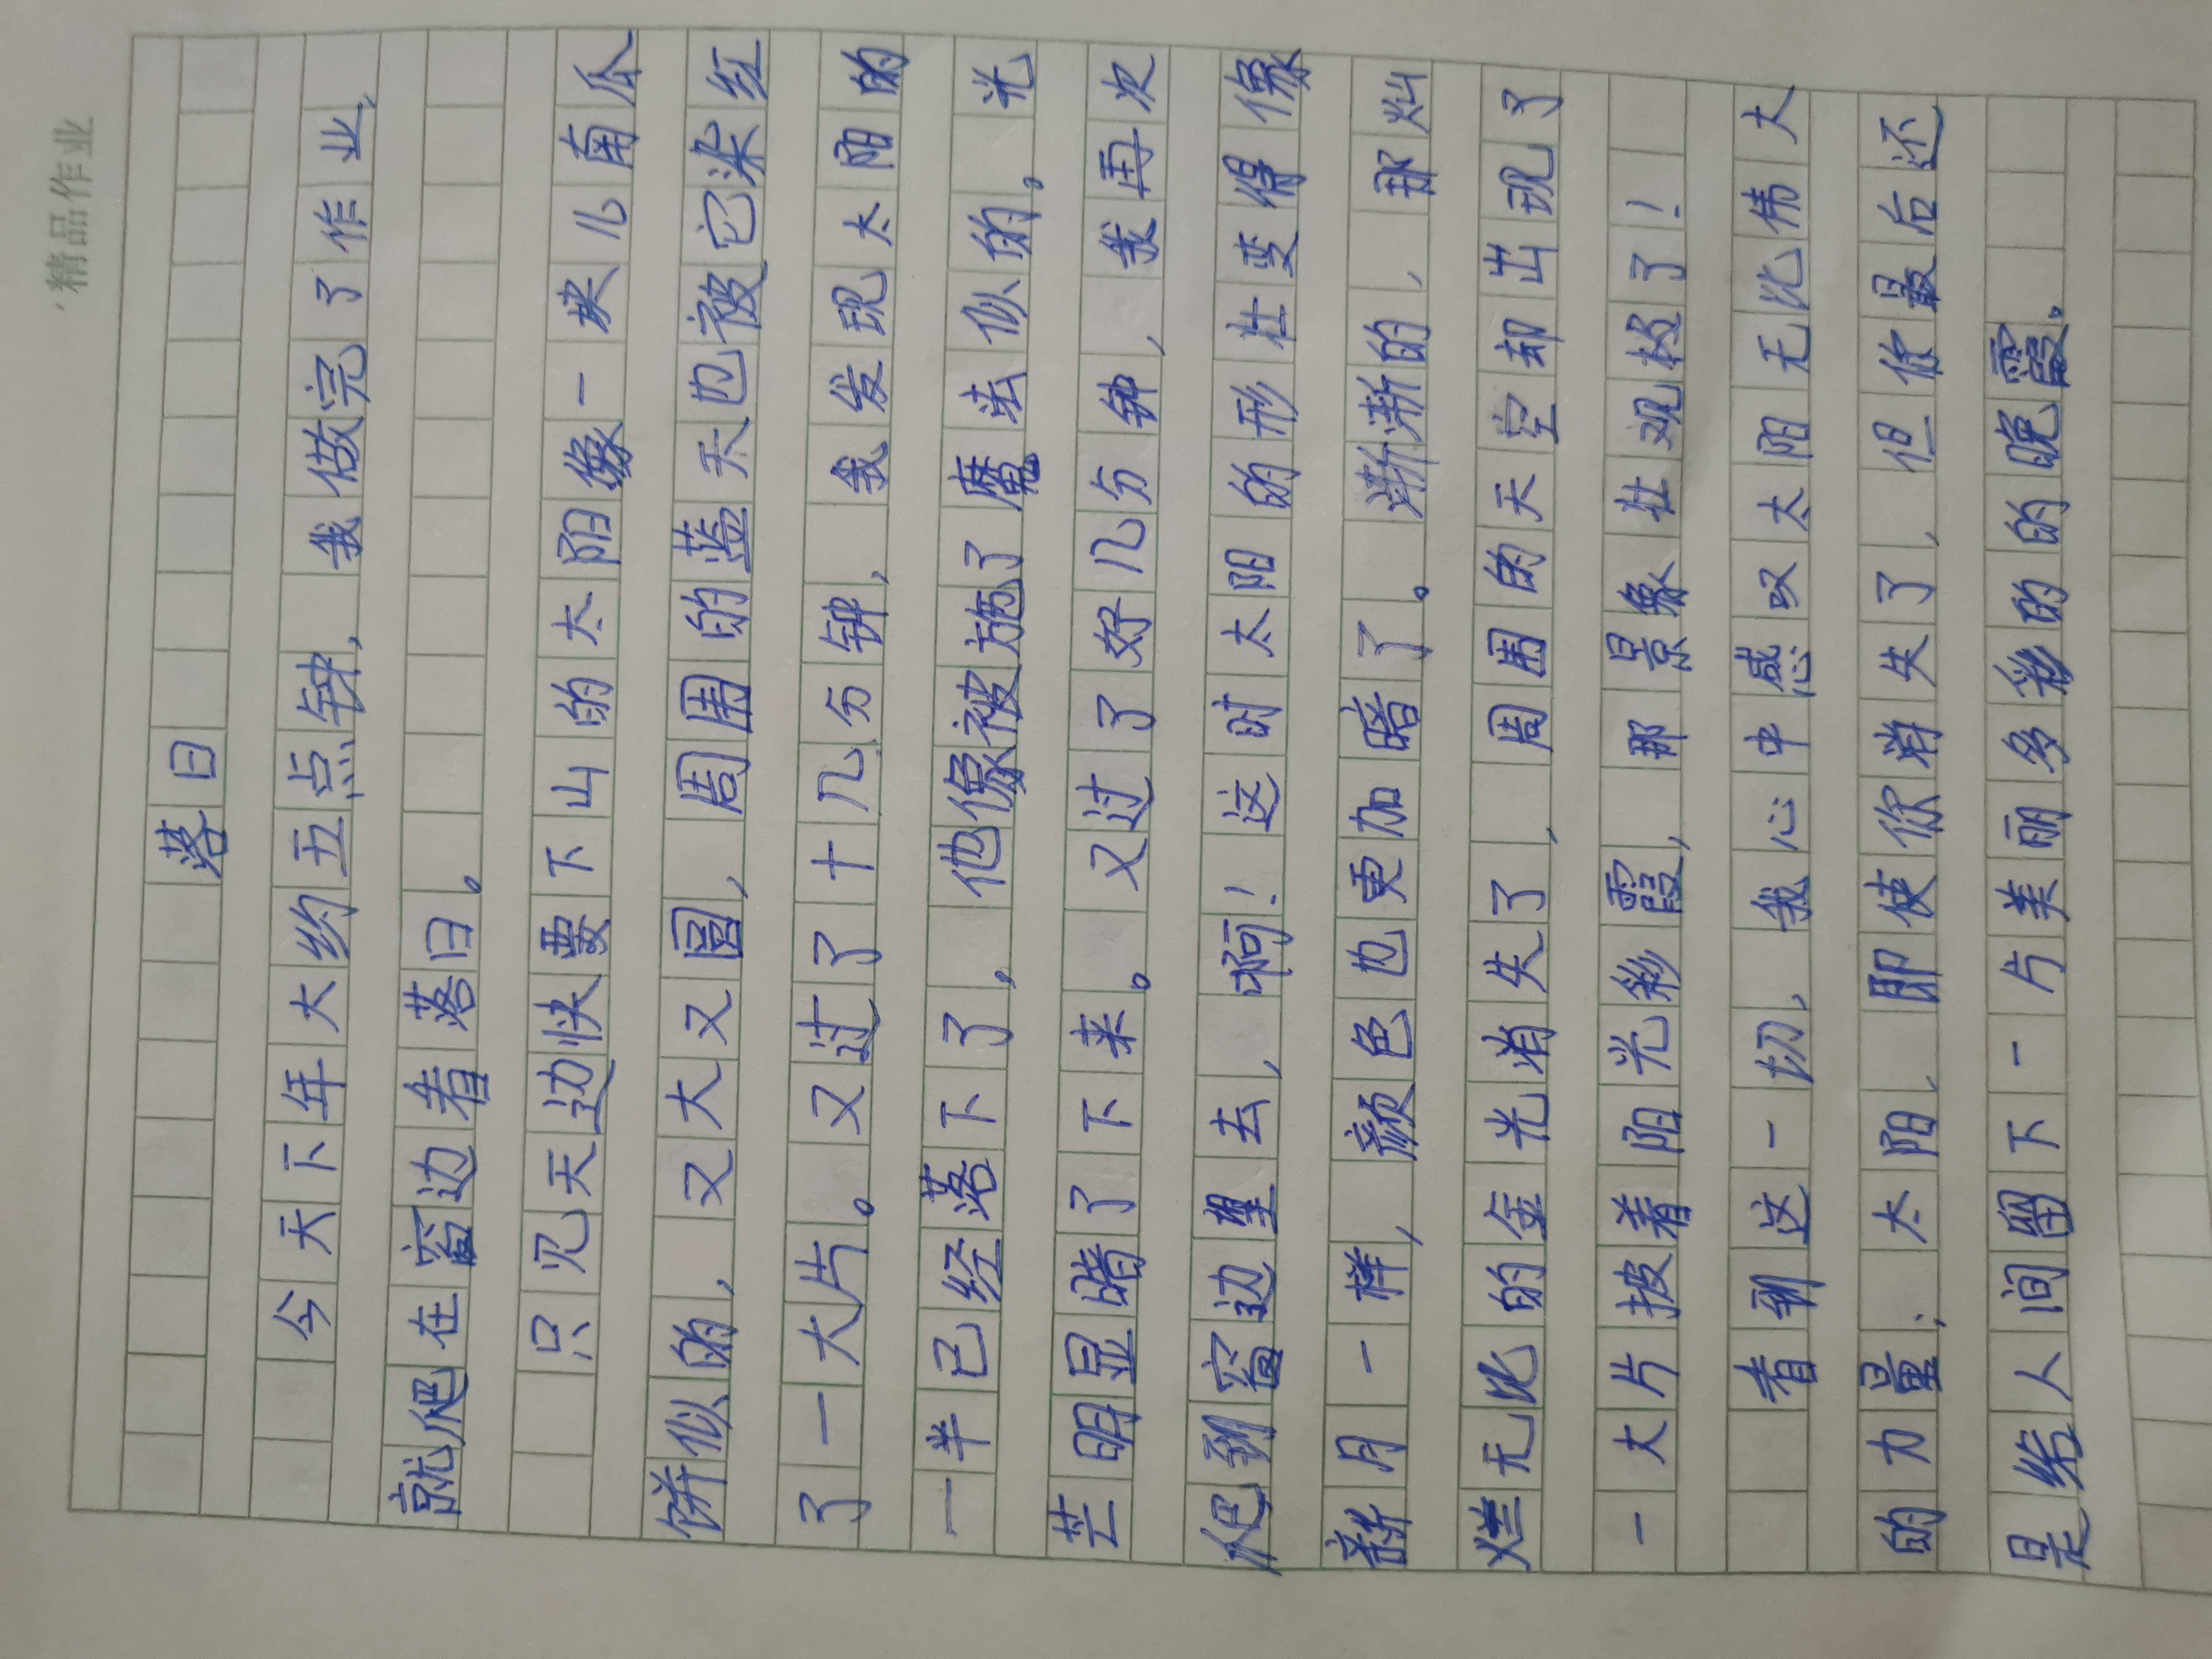 精品作业
落日
今天下年大约五点钟，我做完了作业，
就爬在窗边看落日。
只见天边快要下山的太阳像一块儿南瓜
饼似的，又大又圆，周围的蓝天也被它染红
了一大片。又过了十几分钟，我发现太阳的
一半已经落下了，他像被施了魔法似的。光
芒明显暗了下来。又过了好几分钟，我再次
爬到窗边望去，啊！这时太阳的形壮变得像
薪月一样，颜色也更加暗了。渐渐的，那灿
烂无比的金光消失了，周围的天空却出现了
一大片披着阳光彩霞，那景象壮观极了！
看到这一切，我心中感叹太阳无比伟大
的力量；太阳，即使你消失了，但你最后还
是给人间留下一片美丽多彩的的晚霞。